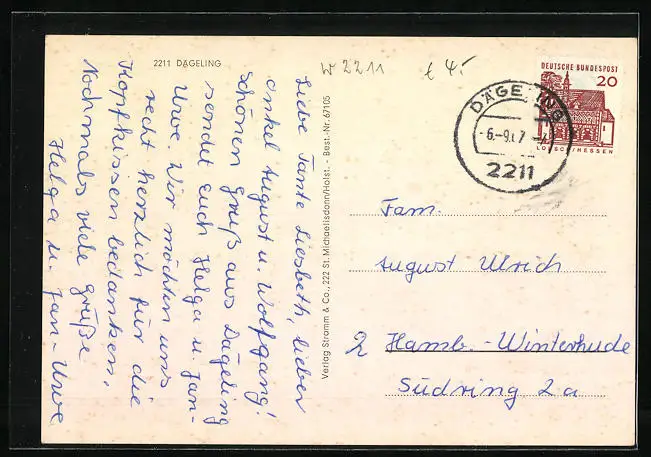 2211 DÄGELING
W 2211
€ 4.-
Liebe Tante Liesbeth, lieber
Onkel August u. Wolfgang!
Schönen Gruß aus Dägeling
sendet Euch Helga u. Jan-
Uwe. Wir möchten uns
recht herzlich für die
Kopfkissen bedanken.
Nochmals viele Grüße
Helga u. Jan-Uwe
Verlag Stramm & Co., 222 St. Michaelisdonn/Holst. - Best.-Nr. 67105
DEUTSCHE BUNDESPOST
20
LORSCH/HESSEN
DÄGELING
2211
Fam.
August Ulrich
2 Hamb.-Winterhude
Südring 2a